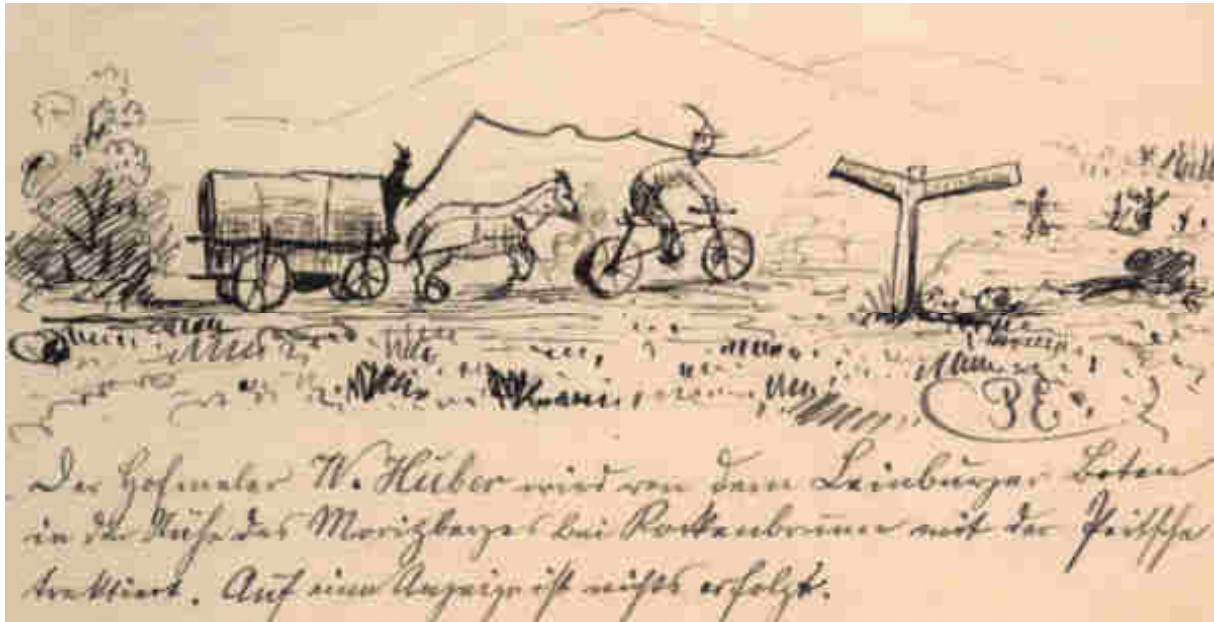 P E.
Der Hofmaler W. Huber wird von dem Leinburger Boten
in der Nähe des Moritzberges bei Rockenbrunn mit der Peitsche
traktiert. Auf eine Anzeige ist nichts erfolgt.